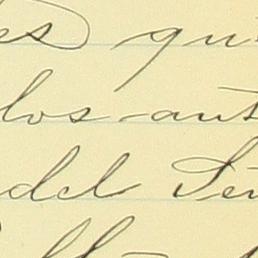 es qu
los ant
del Sen